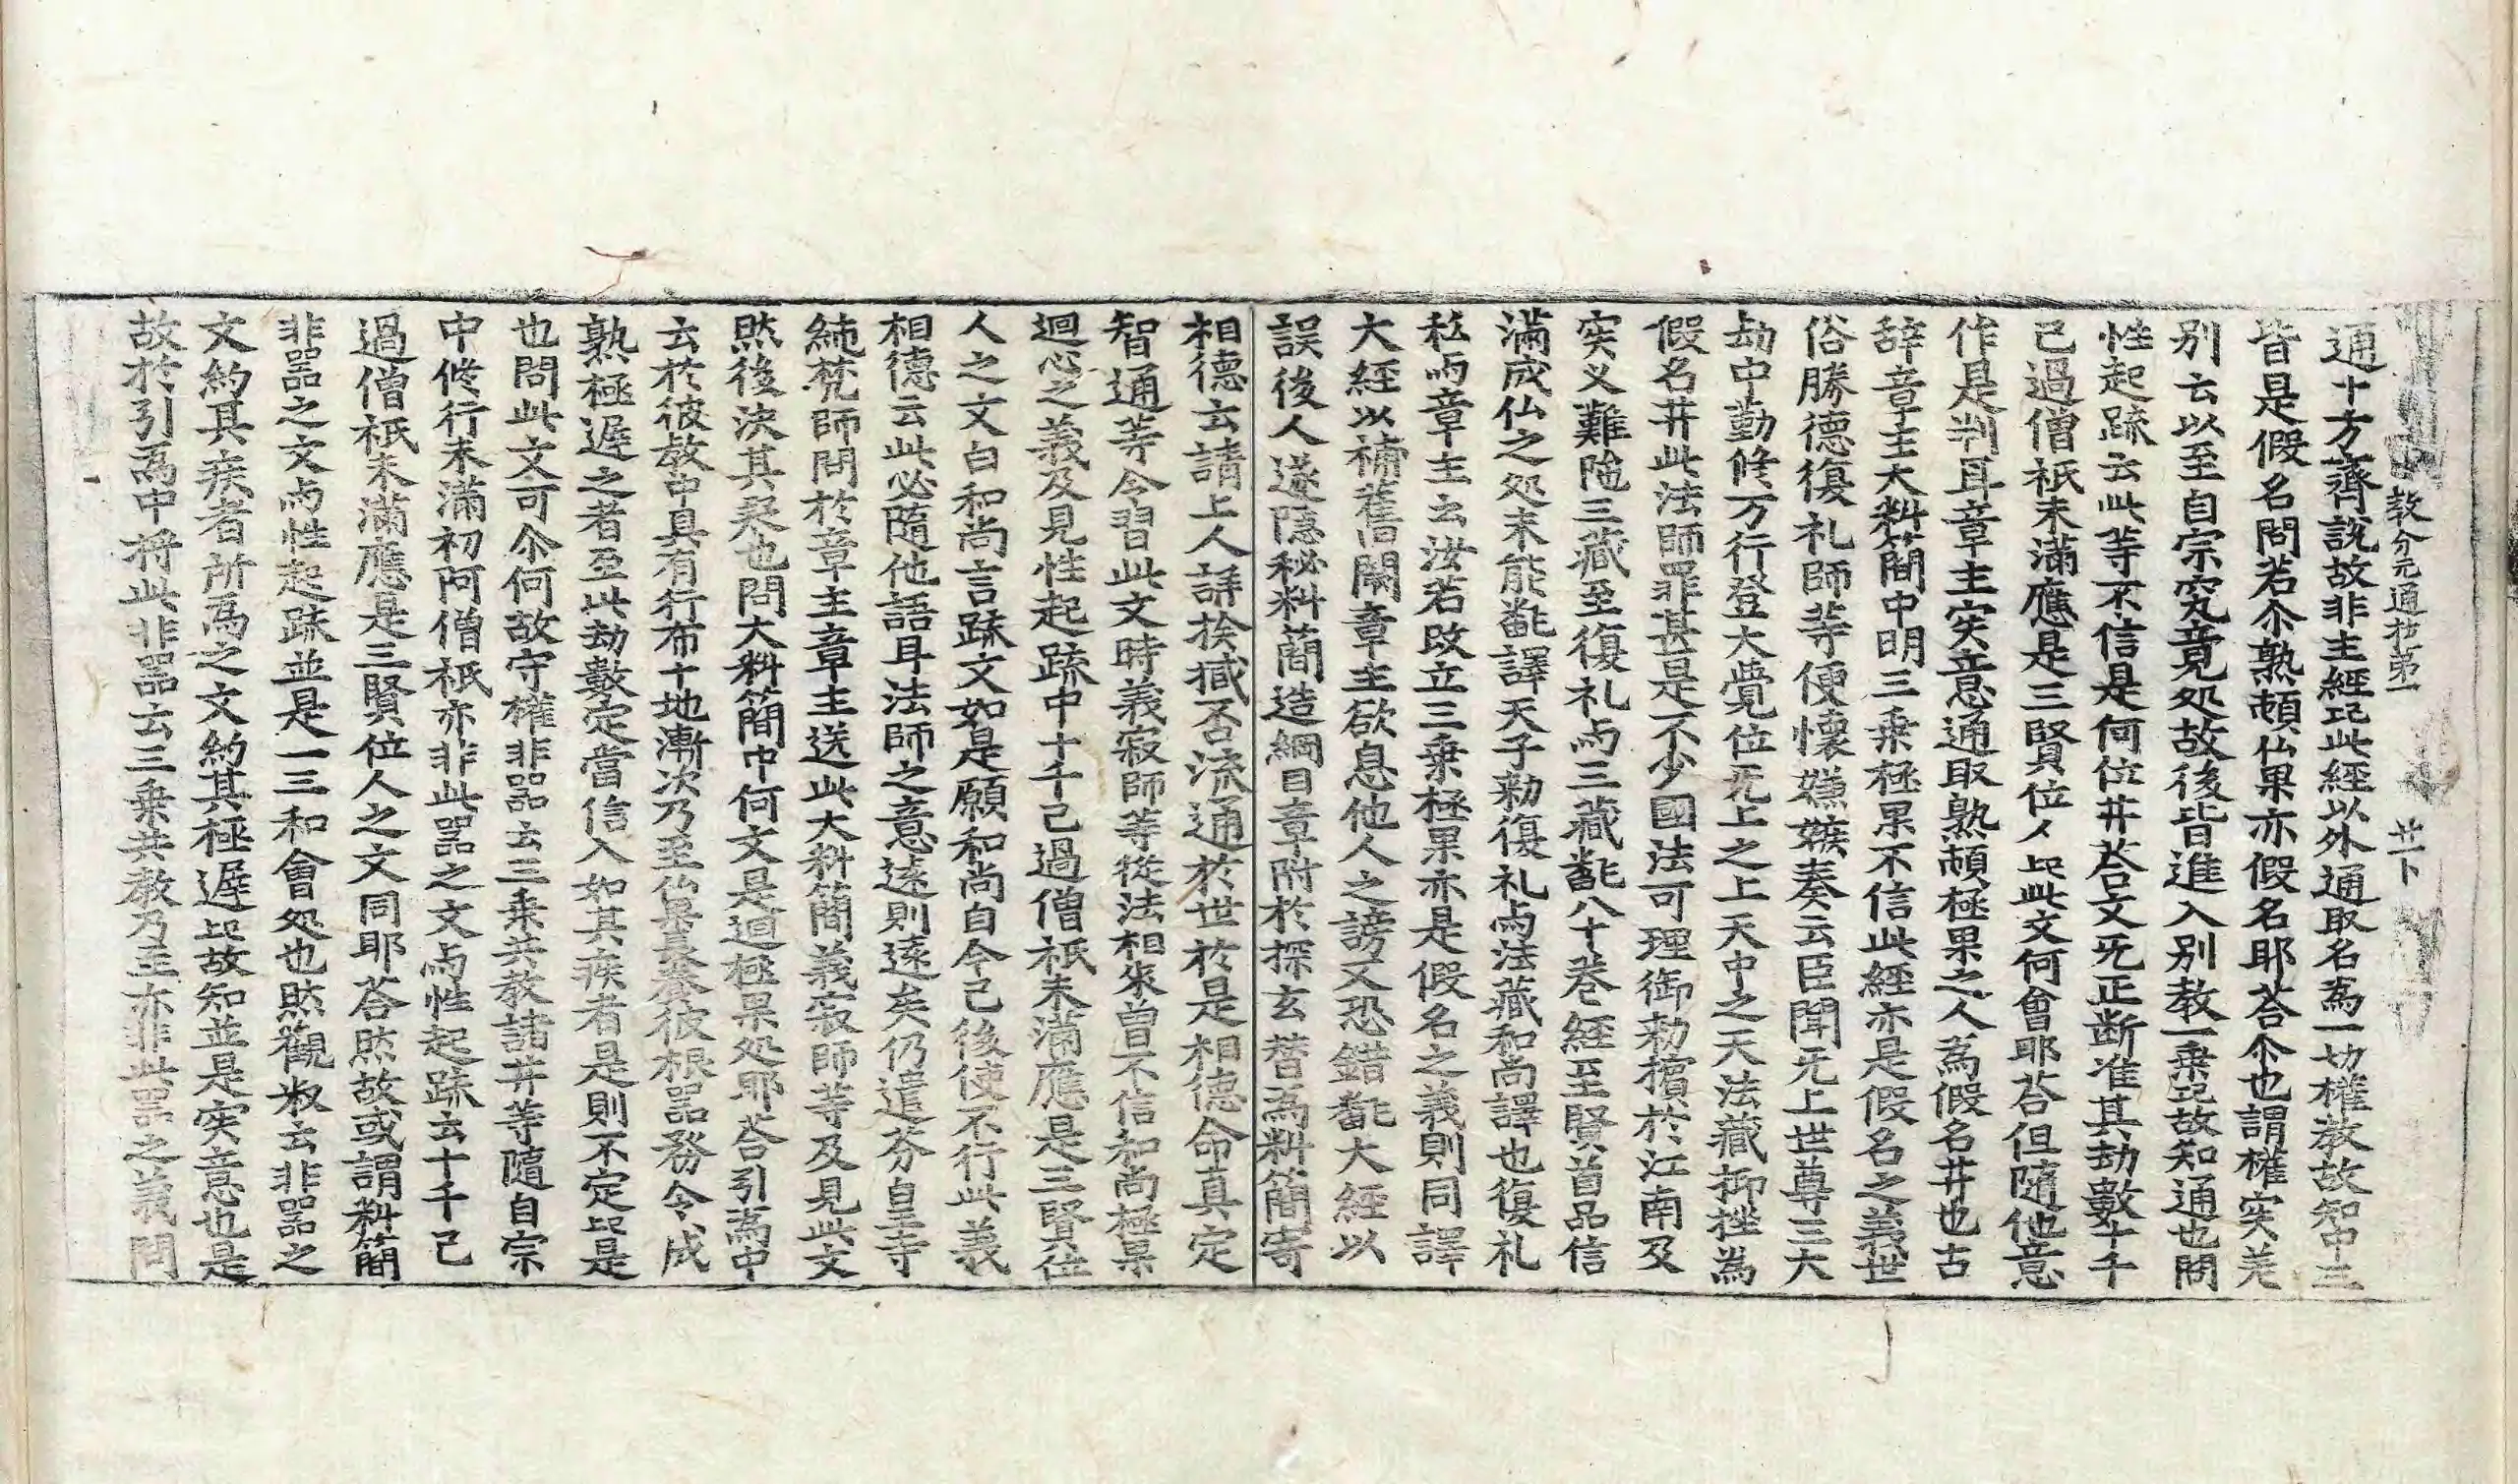 教分元通抄第一 廿一卜
通十方齊說故非主經㫋此經以外通取名為一切權教故知中三
皆是假名問若尒熟頓仏果亦假名耶荅尒也謂權实差
别云以至自宗究竟处故後皆進入别教一乗㫋故知通也問
性起䟽云此等不信是何位井荅文旡正断准其劫數十千
已過僧祇未滿應是三賢位人㫋此文何會耶荅但随他意
作是判耳章主实意通取熟頓極果之人為假名井也古
辞章主大料簡中明三乗極果不信此經亦是假名之義世
俗勝徳復礼師等便懐嫌嫉奏云臣聞旡上世尊三大
劫中勤修万行登大覺位旡上之上天中之天法藏抑挫為
假名井此法師罪甚是不少國法可理御勑擯於江南及
实叉難陁三藏至復礼与三藏飜八十卷經至賢首品信
滿成仏之処未能飜譯天子勑復礼与法藏和尚譯也復礼
私与章主云汝若改立三乗極果亦是假名之義則同譯
大經以補舊闕章主欲息他人之謗又恐錯飜大經以
誤後人遂隠秘料簡造綱目章附於探玄替為料簡寄
相德云請上人詳挨臧否流通於世於是相德命真定
智通等令習此文時義寂師等從法相来曽不信和尚極果
迴心之義及見性起䟽中十千已過僧祇未滿應是三賢位
人之文白和尚言䟽文如是願和尚自今已後使不行此義
相德云此必隨他語耳法師之意遠則遠矣仍遣芬皇寺
純梵師問於章主章主送此大料簡義寂師等及見此文
然後決其疑也問大料簡中何文是迴極果処耶荅引為中
云於彼教中具有行布十地漸次乃至仏果長養彼根器務令成
熟極遅之者至此劫數定當信入如其疾者是則不定㫋是
也問此文可尒何故守權非器云三乗共教諸井等隨自宗
中修行未滿初阿僧祇亦非此器之文与性起䟽云十千已
過僧祇未滿應是三賢位人之文同耶荅然故或謂料簡
非器之文与性起䟽並是一三和會処也然觀㭊云非器之
文約其疾者所為之文約其極遅㫋故知並是实意也是
故於引為中将此非器云三乗共教乃至亦非此器之義問